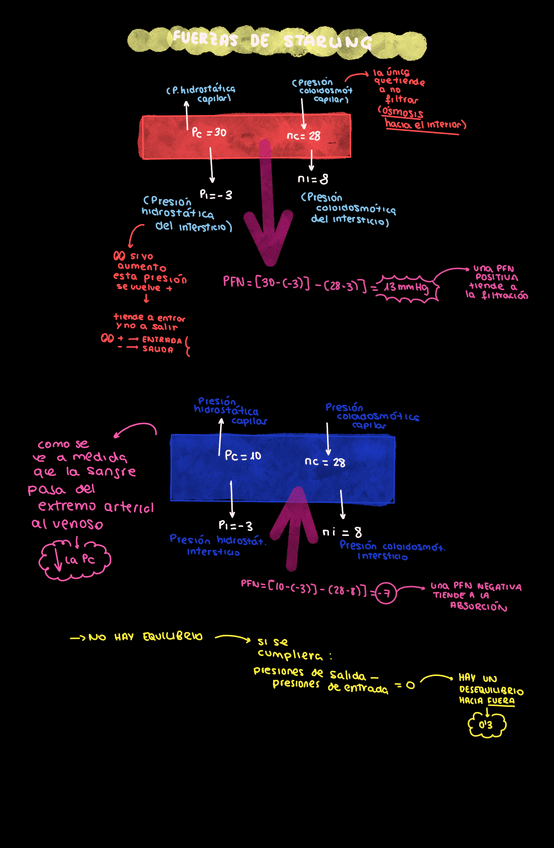 FUERZAS DE STARLING
(P. hidrostática
capilar)
(Presión
coloidosmót
capilar)
la única
que tiende
a no
filtrar
(ósmosis
hacia el interior)
Pc = 30
πc = 28
Pi = -3
πi = 8
(Presión
hidrostática
del intersticio)
(Presión
coloidosmótica
del intersticio)
si yo
aumento
esta presión
se vuelve +
tiende a entrar
y no a salir
+ → ENTRADA
- → SALIDA
PFN = [30-(-3)] - (28-3)] = 13 mmHg
una PFN
POSITIVA
tiende a
la filtración
Presión
hidrostática
capilar
Presión
coloidosmótica
capilar
Pc = 10
πc = 28
Pi = -3
πi = 8
Presión hidrostát.
intersticio
Presión coloidosmót.
intersticio
como se
ve a medida
que la sangre
pasa del
extremo arterial
al venoso
↓ la Pc
PFN = [10-(-3)] - (28-8)] = -7
una PFN NEGATIVA
TIENDE A LA
ABSORCIÓN
→ NO HAY EQUILIBRIO
si se
cumpliera:
presiones de salida -
presiones de entrada = 0
HAY UN
DESEQUILIBRIO
HACIA FUERA
0'3